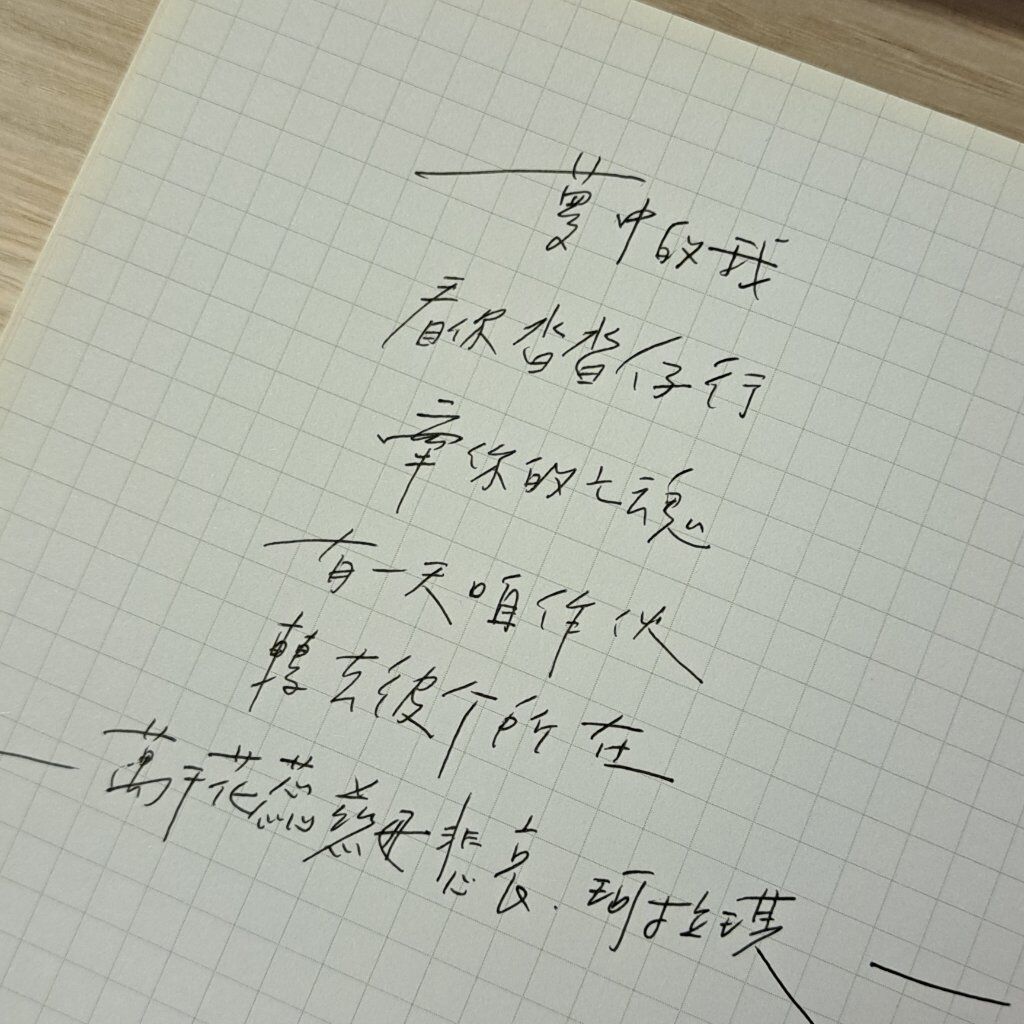 夢中的我
看你沓沓仔行
牽你的七魂
有一天咱作伙
轉去彼个所在
萬千花蕊慈母悲哀．珂拉琪